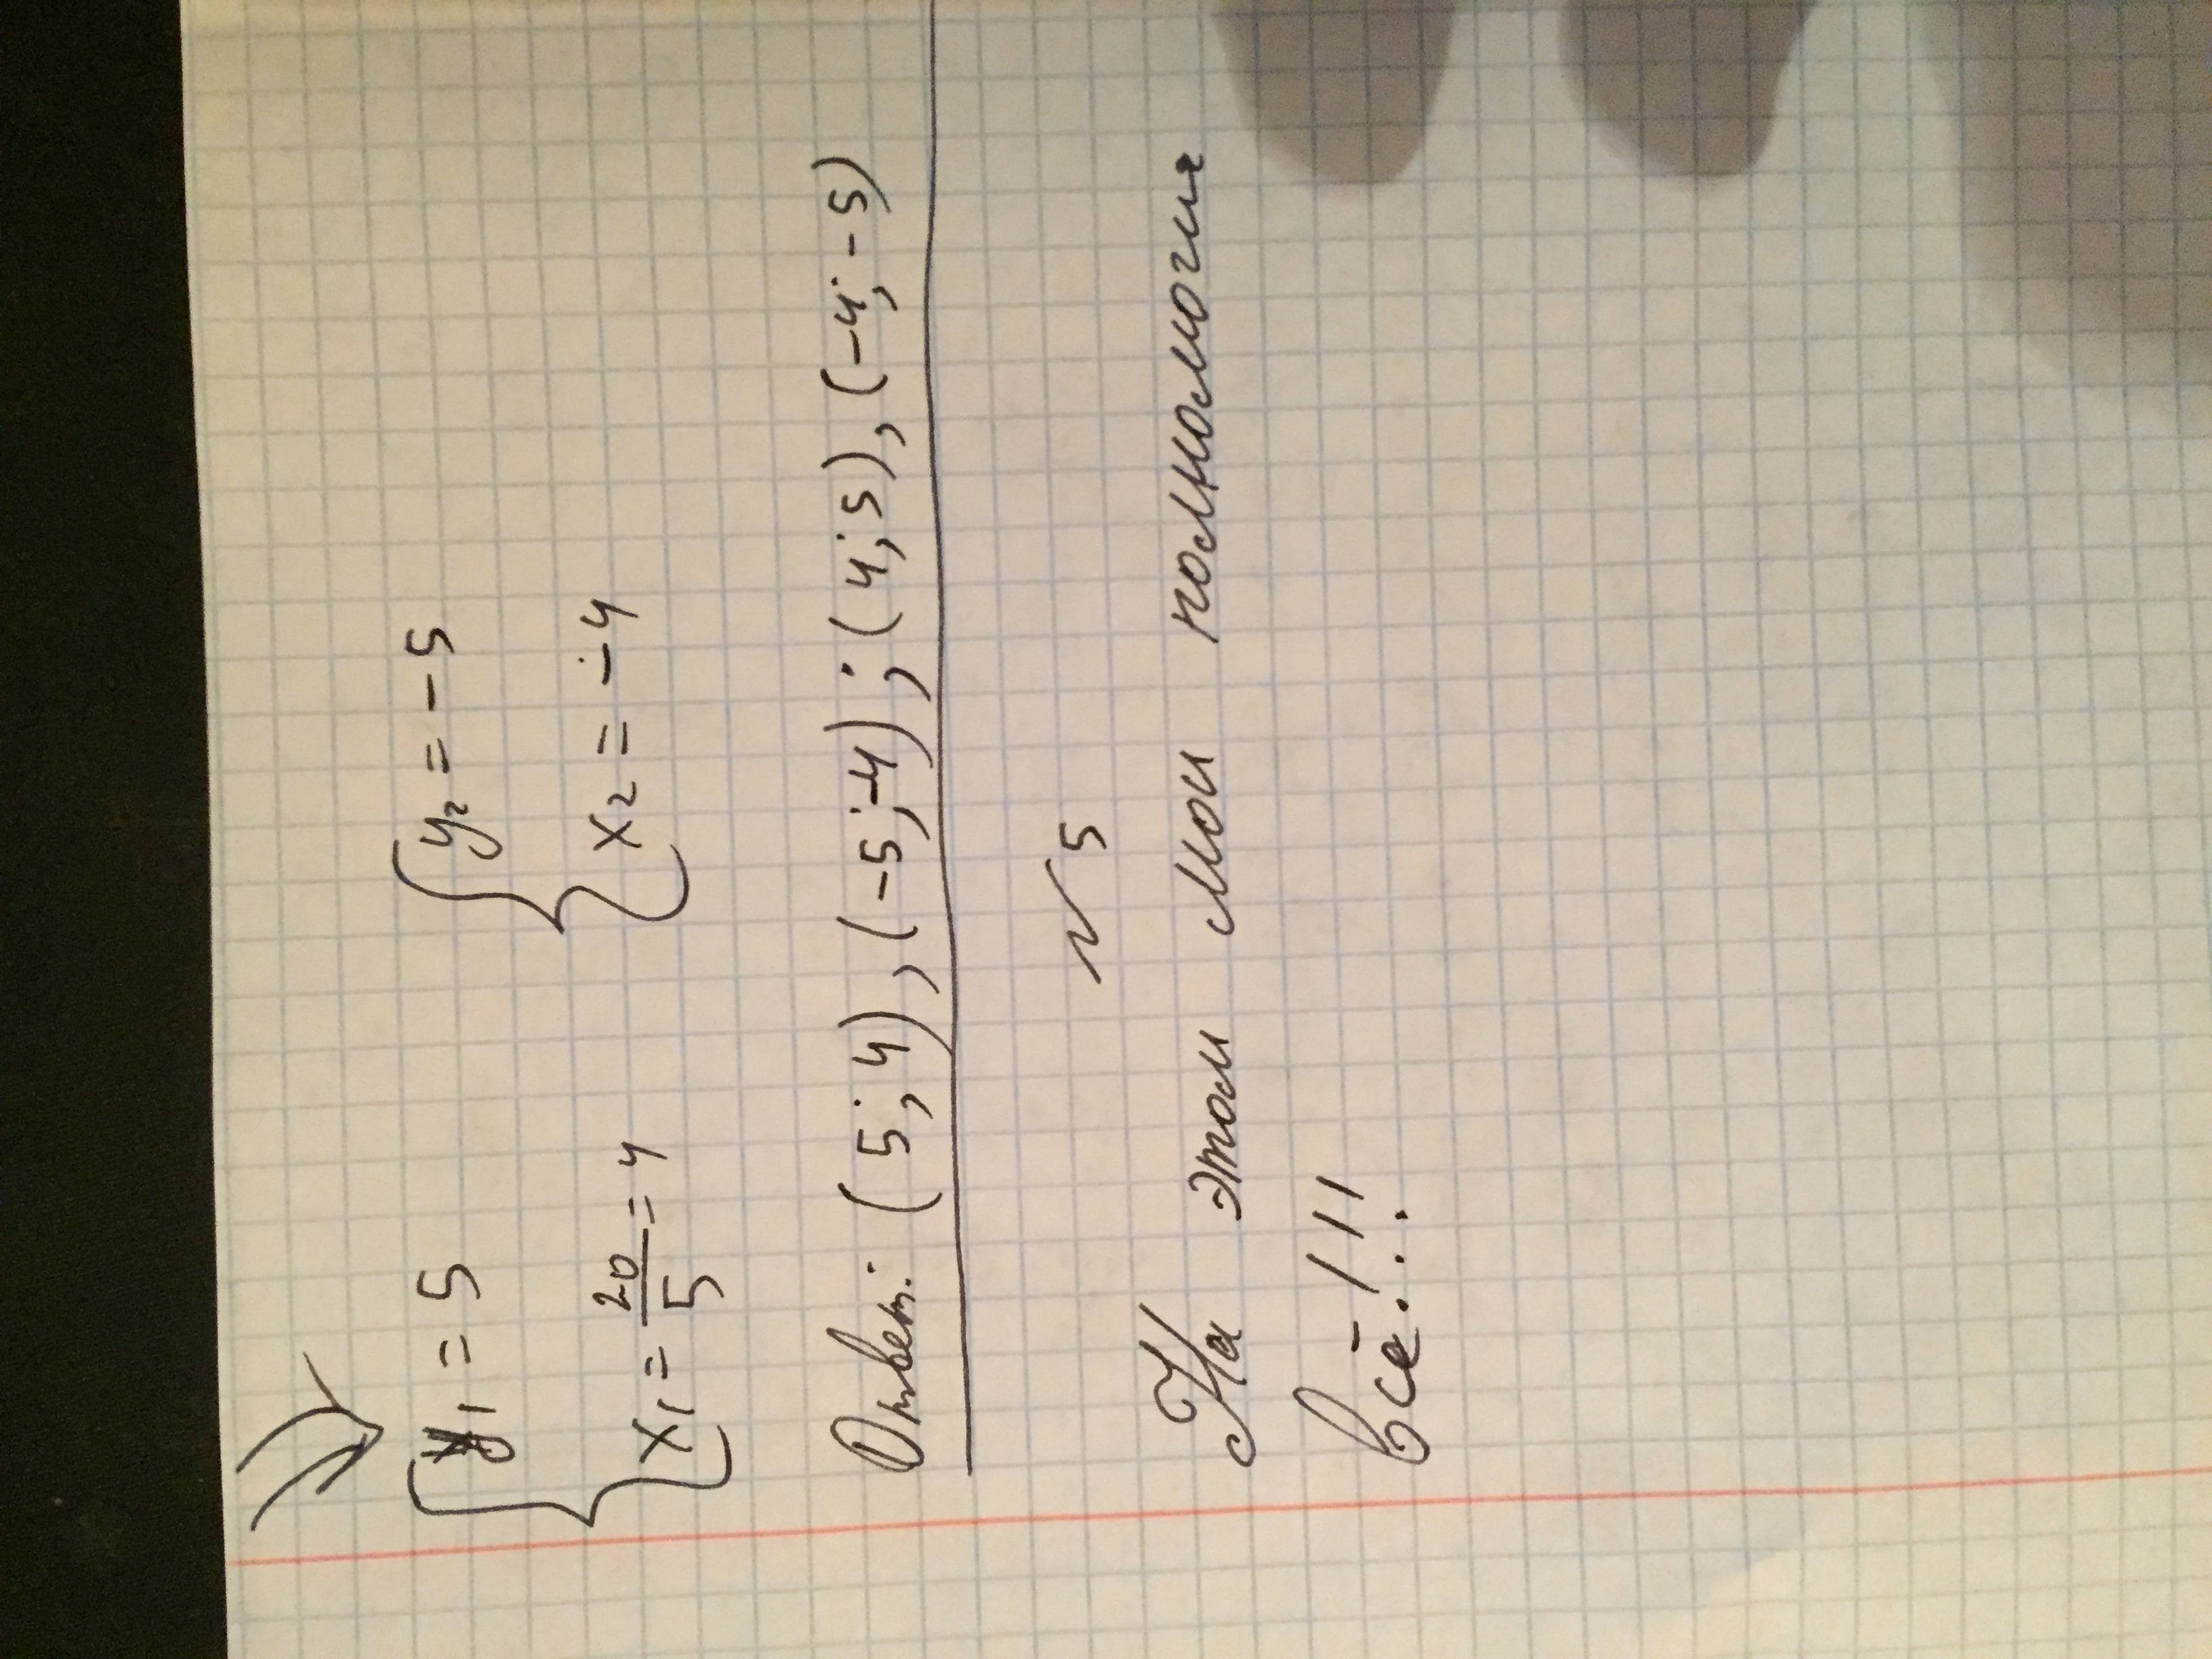 { y₁ = 5    { y₂ = -5
{ x₁ = 20/5 = 4    { x₂ = -4
Ответ: (5; 4), (-5; -4); (4; 5), (-4; -5)
№5
На этом мои полномочия
всё!!!